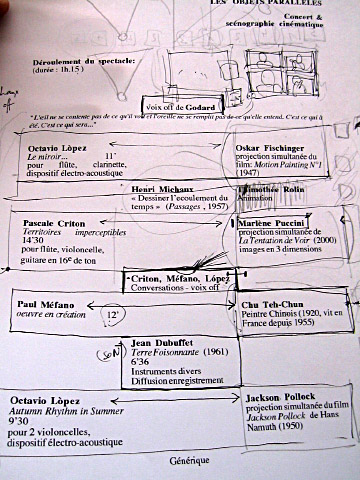 LES OBJETS PARALLELES
Concert &
scénographie cinématique
Déroulement du spectacle:
(durée : 1h.15)
off
voix off de Godard
"L'œil ne se contente pas de ce qu'il voit et l'oreille ne se remplit pas de ce qu'elle entend. C'est ce qui a
été. C'est ce qui sera..."
Octavio Lòpez
Le miroir... 11'
pour flûte, clarinette,
dispositif électro-acoustique
Oskar Fischinger
projection simultanée du
film: Motion Painting N°1
(1947)
Henri Michaux
« Dessiner l'ecoulement du
temps » (Passages , 1957)
Thimothée Rolin
Animation
Pascale Criton
Territoires imperceptibles
14'30
pour flûte, violoncelle,
guitare en 16e de ton
Marlène Puccini
projection simultanée de
La Tentation de Voir (2000)
images en 3 dimensions
Criton, Méfano, Lópèz
Conversations - voix off
Paul Méfano
oeuvre en création
12'
Chu Teh-Chun
Peintre Chinois (1920, vit en
France depuis 1955)
(SON)
Jean Dubuffet
Terre Foisonnante (1961)
6'36
Instruments divers
Diffusion enregistrement
Octavio Lòpez
Autumn Rhythm in Summer
9'30
pour 2 violoncelles,
dispositif électro-acoustique
Jackson Pollock
projection simultanée du film
Jackson Pollock de Hans
Namuth (1950)
Générique